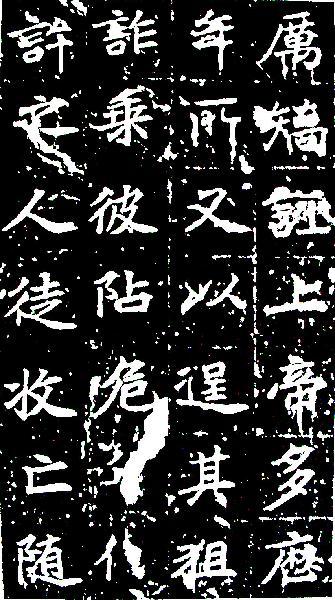 厲矯誣上帝多歷
年所又以逞其狙
詐乘彼阽危
許人徒收亡随